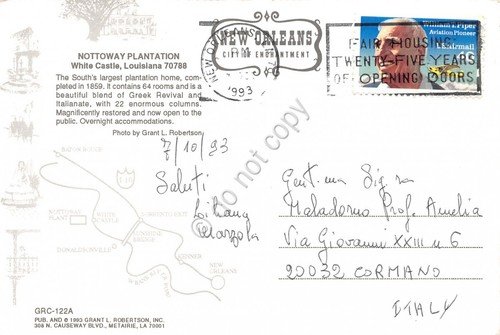 NOTTOWAY PLANTATION
White Castle, Louisiana 70788
The South's largest plantation home, com-
pleted in 1859. It contains 64 rooms and is a
beautiful blend of Greek Revival and
Italianate, with 22 enormous columns.
Magnificently restored and now open to the
public. Overnight accommodations.
Photo by Grant L. Robertson.
NEW ORLEANS
1993
NEW ORLEANS
CITY OF ENCHANTMENT
William T. Piper
Aviation Pioneer
USAirmail
FAIR HOUSING:
TWENTY-FIVE YEARS
OF OPENING DOORS
7/10/93
Saluti
Liliana
Gent.ma Sig.ra
Maladorno Prof. Amelia
Via Giovanni XXIII n 6
20032 CORMANO
ITALY
Do not copy
BATON ROUGE
I-10
NOTTOWAY
PLANTATION
WHITE
CASTLE
SUNSHINE
BRIDGE
DONALDSONVILLE
KENNER
NEW
ORLEANS
GRC-122A
PUB. AND © 1993 GRANT L. ROBERTSON, INC.
308 N. CAUSEWAY BLVD., METAIRIE, LA 70001